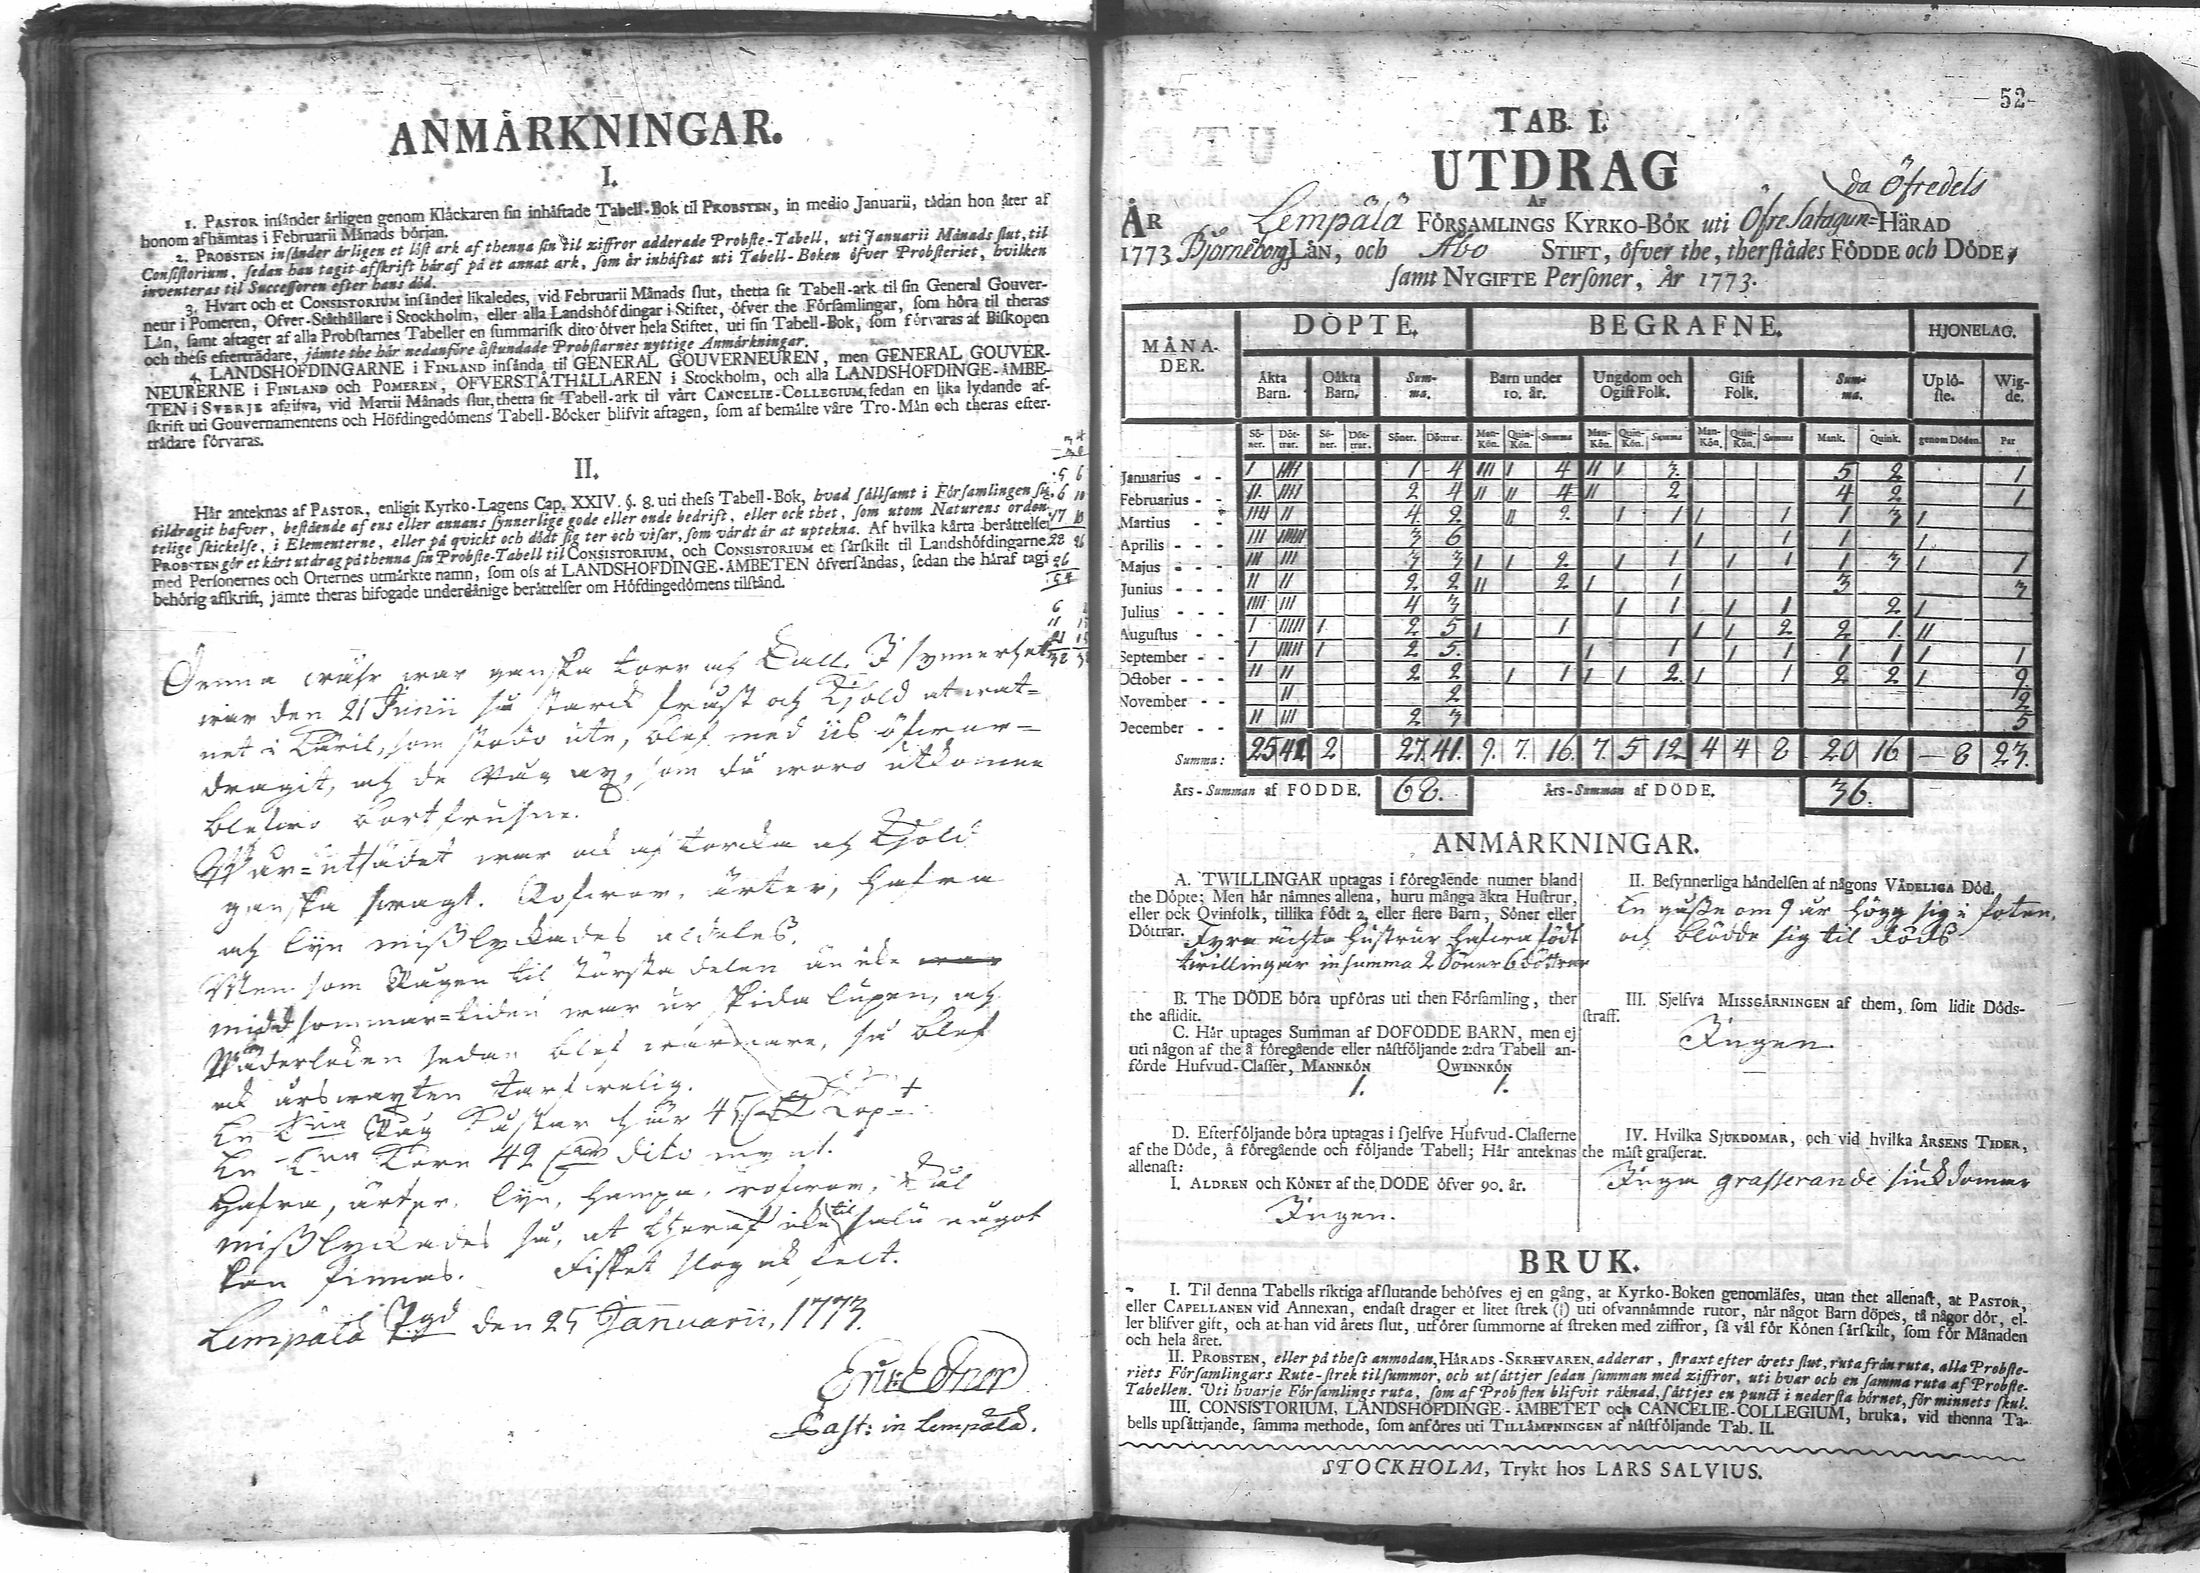 ANMÄRKNINGAR.
I.
1. PASTOR insänder årligen genom Klåckaren sin inhäftade Tabell-Bok til PROBSTEN, in medio Januarii, tådan hon åter af
honom afhämtas i Februarii Månads början.
2. PROBSTEN insänder årligen et löst ark af thenna sin til ziffror adderade Probste-Tabell, uti Januarii Månads slut, til
Consistorium, sedan han tagit afskrift häraf på et annat ark, som är inhäftat uti Tabell-Boken öfver Probsteriet, hvilken
inventeras til Successoren efter hans död.
3. Hvart och et CONSISTORIUM insänder likaledes, vid Februarii Månads slut, thetta sit Tabell-ark til sin General Gouver-
neur i Pomeren, Ofver-Ståthållare i Stockholm, eller alla Landshöfdingar i Stiftet, öfver the Församlingar, som höra til theras
Län, samt aftager af alla Probstarnes Tabeller en summarisk dito öfver hela Stiftet, uti sin Tabell-Bok, som förvaras af Biskopen
och thess efterträdare, jämte the här nedanföre åstundade Probstarnes nyttige Anmärkningar.
4. LANDSHÖFDINGARNE i FINLAND insända til GENERAL GOUVERNEUREN, men GENERAL GOUVER-
NEURERNE i FINLAND och POMEREN, OFVERSTÅTHÅLLAREN i Stockholm, och alla LANDSHÖFDINGE-ÄMBE-
TEN i SVERJE afgifva, vid Martii Månads slut, thetta sit Tabell-ark til vårt CANCELIE-COLLEGIUM, sedan en lika lydande af-
skrift uti Gouvernamentens och Höfdingedömens Tabell-Böcker blifvit aftagen, som af bemälte våre Tro-Män och theras efter-
trädare förvaras.
II.
Här anteknas af PASTOR, enligit Kyrko-Lagens Cap. XXIV. §. 8. uti thess Tabell-Bok, hvad sällsamt i Församlingen sig
tildragit hafver, bestående af ens eller annans synnerlige gode eller onde bedrift, eller ock thet, som utom Naturens orden-
telige skickelse, i Elementerne, eller på qvickt och dödt sig ter och visar, som värdt är at uptekna. Af hvilka kårta berättelser
PROBSTEN gör et kårt utdrag på thenna sin Probste-Tabell til CONSISTORIUM, och CONSISTORIUM et särskilt til Landshöfdingarne
med Personernes och Orternes utmärkte namn, som oss af LANDSHÖFDINGE-ÄMBETEN öfversändas, sedan the häraf tagi
behörig afskrift, jämte theras bifogade underdånige berättelser om Höfdingedömens tilstånd.
Denna währ war ganska torr och kall. I synnerhet
war den 21 Junii så starck frost och kjöld at wat-
net i käril, som stodo ute, blef med iis öfwer-
dragit, och de Råg ax, som då woro utkomne
blefwo bortfrusne.
Wår-utsädet war ock af torcka och kjöld
ganska swagt. Rofwor, ärter, hafra
och lijn misslyckades aldeles.
Men som Rågen til största delen än icke
middsommar-tiden war ur skida lupen, och
Wäderleken sedan blef warmare, så blef
ock årswäxten tarfwelig.
En T:na Råg kostar här 45
En T:na Korn 42 dito mynt.
Hafra, ärter, lijn, hampa, rofwor, kål
misslyckades så, at theraf icke til salu något
kan finnas. Fisket slog ock felt.
Lempälä Pgd den 25 Januarii, 1773.
Eric Edner
Past: in Lempälä.
52
TAB. I.
UTDRAG
AF
ÅR Lempälä FÖRSAMLINGS KYRKO-BÖK uti Öfre Satagun=HÄRAD
da Öfredels
1773 Björneborgs LÄN, och Åbo STIFT, öfver the, therstädes FÖDDE och DÖDE,
samt NYGIFTE Personer, År 1773.
MÅNA-DER. DÖPTE. BEGRAFNE. HJONELAG.
Äkta Barn. Oäkta Barn. Summa. Barn under 10. år. Ungdom och Ogift Folk. Gift Folk. Summa. Uplöste. Wigde.
Söner. Döttrar. Söner. Döttrar. Söner. Döttrar. Mankön. Quinkön. Summa Mankön. Quinkön. Summa Mankön. Quinkön. Summa Mank. Quink. genom Döden. Par
Januarius - - I IIII 1 4 III I 4 II I 3 5 2 1
Februarius - - II IIII 2 4 II II 4 II 2 4 2 1
Martius - - IIII II 4 2 II 2 I 1 I 1 1 3 I
Aprilis - - - III IIIIII 3 6 I 1 1 I
Majus - - - III III 3 3 I I 2 I 1 I 1 1 3 I 1
Junius - - - II II 2 2 II 2 I 1 3 3
Julius - - - IIII III 4 3 I 1 I 1 2 I
Augustus - - I IIIII I 2 5 I 1 I I 2 2 1 II
September - - I IIIII I 2 5 I 1 I 1 1 1 I 1
October - - - II II 2 2 I 1 I I 2 I 1 2 2 I 9
November - - II 2 2
December - - II III 2 3 5
Summa: 25 41 2 27. 41. 9. 7. 16. 7. 5 12 4 4 8 20 16 — 8 23.
Års-Summan af FÖDDE. 68. Års-Summan af DÖDE. 36.
ANMÄRKNINGAR.
A. TWILLINGAR uptagas i föregående numer bland
the Döpte; Men här nämnes allena, huru många äkta Hustrur,
eller ock Qvinfolk, tillika födt 2, eller flere Barn, Söner eller
Döttrar. Fyra ächta hustrur hafwa födt
twillingar in summa 2 Söner 6 döttrar
B. The DÖDE böra upföras uti then Församling, ther
the aflidit.
C. Här uptages Summan af DÖDFÖDDE BARN, men ej
uti någon af the å föregående eller nästföljande 2:dra Tabell an-
förde Hufvud-Classer, MANNKÖN QWINNKÖN
1. 1.
D. Efterföljande böra uptagas i sjelfve Hufvud-Classerne
af the Döde, å föregående och följande Tabell; Här anteknas
allenast:
I. ALDREN och KÖNET af the DÖDE öfver 90. år.
Ingen.
II. Besynnerliga händelsen af någons VÅDELIGA Död.
En gosse om 9 år högg sig i foten,
och blödde sig til döds
III. Sjelfva MISSGÄRNINGEN af them, som lidit Döds-
straff.
Ingen.
IV. Hvilka SJUKDOMAR, och vid hvilka ÅRSENS TIDER,
the mäst grasserat.
Inga grasserande siuckdomar
BRUK.
I. Til denna Tabells riktiga afslutande behöfves ej en gång, at Kyrko-Boken genomläses, utan thet allenast, at PASTOR,
eller CAPELLANEN vid Annexan, endast drager et litet strek (I) uti ofvannämnde rutor, när något Barn döpes, tå någor dör, el-
ler blifver gift, och at han vid årets slut, utförer summorne af streken med ziffror, så väl för Könen särskilt, som för Månaden
och hela året.
II. PROBSTEN, eller på thess anmodan, HÄRADS-SKRIFVAREN, adderar, straxt efter årets slut, ruta från ruta, alla Probste-
riets Församlingars Rute-strek tilsummor, och utsättjer sedan summan med ziffror, uti hvar och en samma ruta af Probste-
Tabellen. Uti hvarje Församlings ruta, som af Probsten blifvit räknad, sättjes en punct i nedersta hörnet, för minnets skul.
III. CONSISTORIUM, LANDSHÖFDINGE-ÄMBETET och CANCELIE-COLLEGIUM, bruka, vid thenna Ta-
bells upsättjande, samma methode, som anföres uti TILLÄMPNINGEN af nästföljande Tab. II.
STOCKHOLM, Trykt hos LARS SALVIUS.